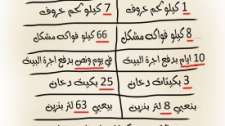 1 كيلو لحم خروف
7 كيلو لحم خروف
8 كيلو فواكه مشكل
66 كيلو فواكه مشكل
10 ايام بدفع اجرة البيت
في يوم ونص بدفع اجرة البيت
3 بكيتات دخان
25 بكيتة دخان
بنعبي 8 لتر بنزين
بيعبي 63 لتر بنزين